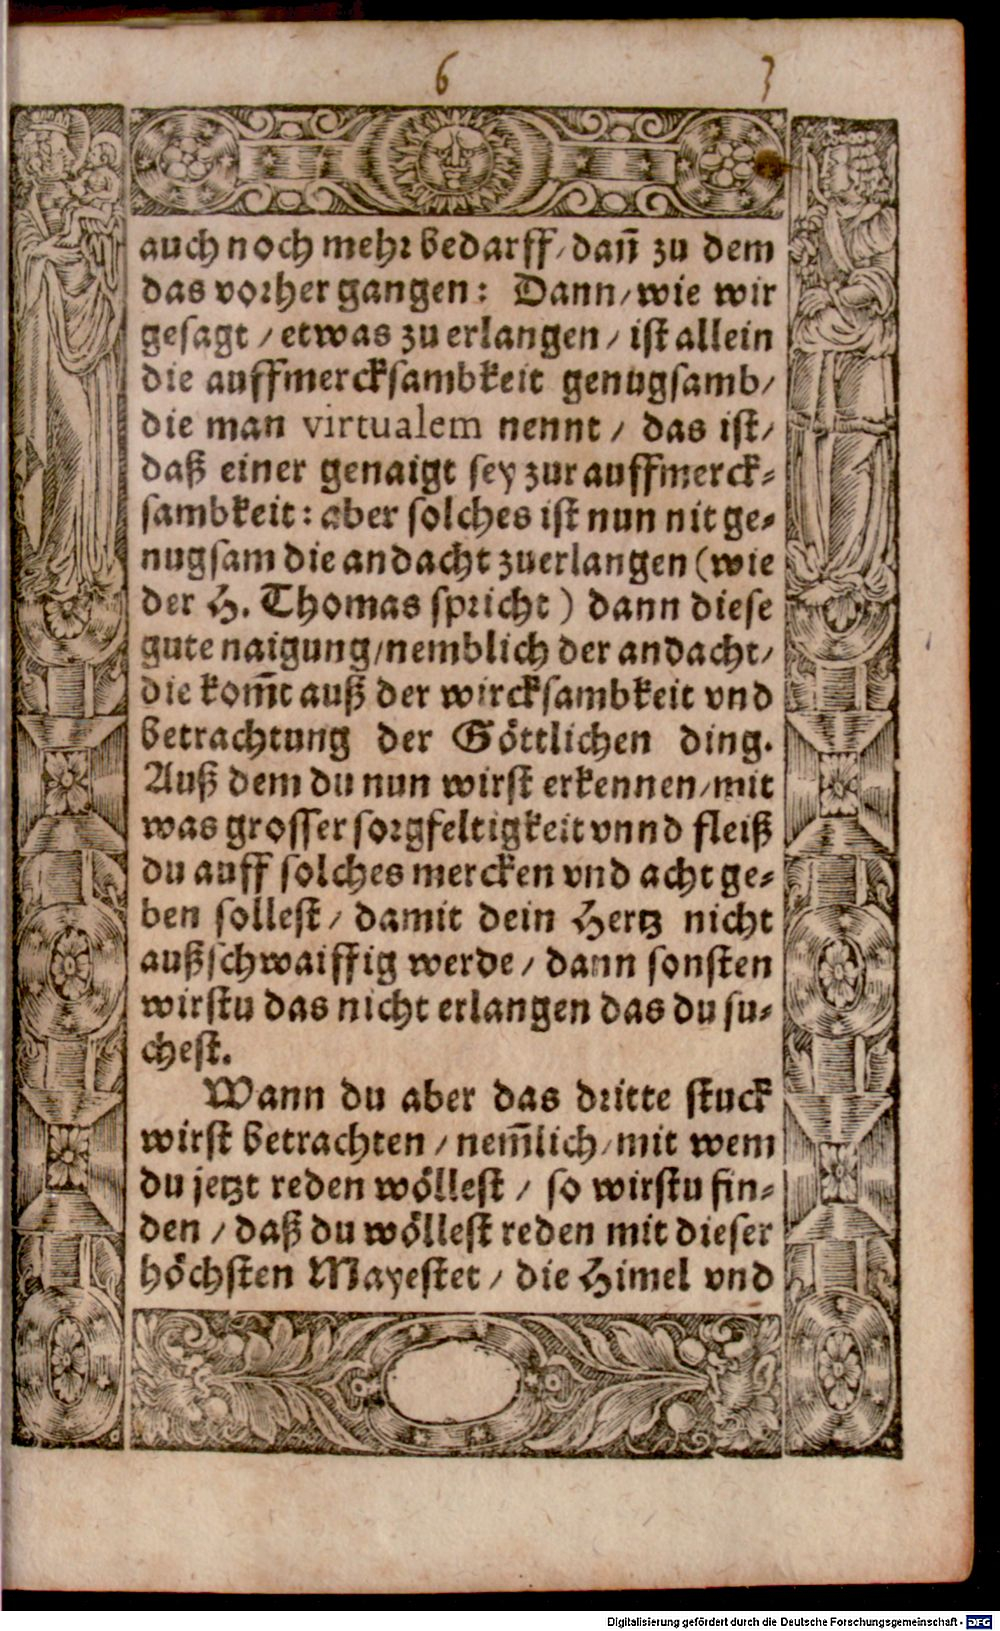 6 3
auch noch mehr bedarff / dañ zu dem
das vorher gangen: Dann / wie wir
gesagt / etwas zu erlangen / ist allein
die auffmercksambkeit genugsamb /
die man virtualem nennt / das ist /
daß einer genaigt sey zur auffmerck-
sambkeit: aber solches ist nun nit ge-
nugsam die andacht zuerlangen (wie
der H. Thomas spricht) dann diese
gute naigung / nemblich der andacht /
die kom̄t auß der wircksambkeit vnd
betrachtung der Göttlichen ding.
Auß dem du nun wirst erkennen / mit
was grosser sorgfeltigkeit vnnd fleiß
du auff solches mercken vnd acht ge-
ben sollest / damit dein Hertz nicht
außschwaiffig werde / dann sonsten
wirstu das nicht erlangen das du su-
chest.
Wann du aber das dritte stuck
wirst betrachten / nem̄lich / mit wem
du jetzt reden wöllest / so wirstu fin-
den / daß du wöllest reden mit dieser
höchsten Mayestet / die Himel vnd
Digitalisierung gefördert durch die Deutsche Forschungsgemeinschaft - DFG